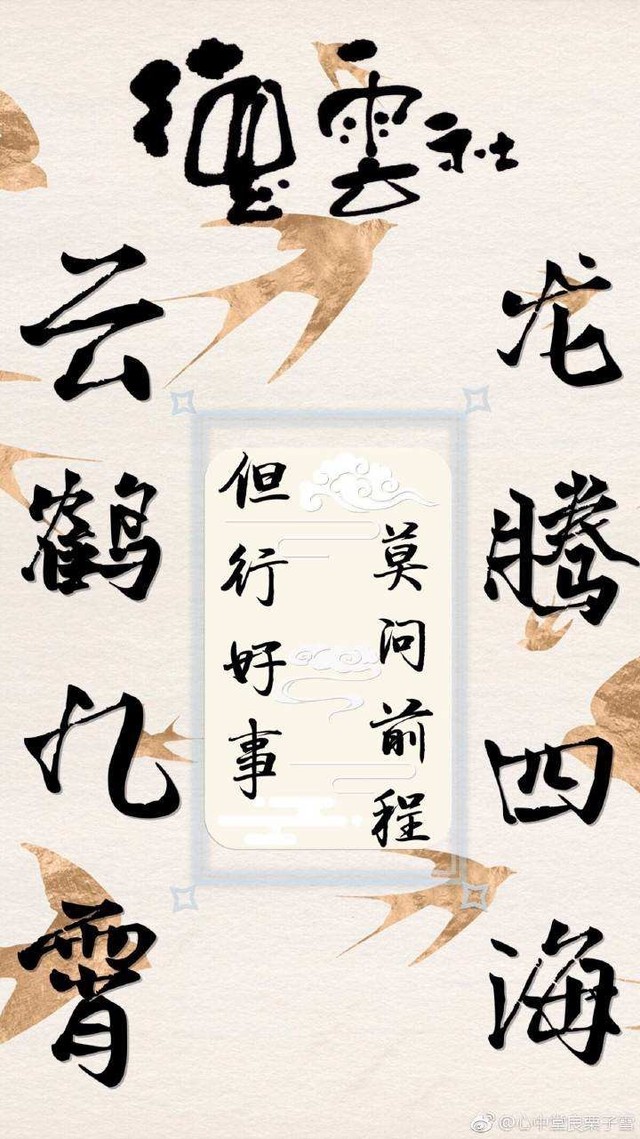 德雲社
云鹤九霄
龙腾四海
但行好事
莫问前程
@心中堂良栗子雪